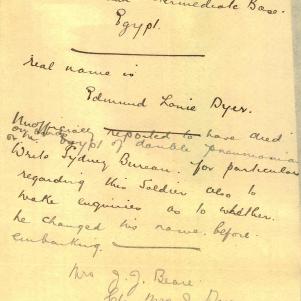 Intermediate Base.
Egypt.
real name is
Edmund Louie Dyer.
Unofficially reported to have died
in Egypt of double pneumonia
Write Sydney Bureau. for particulars
regarding this Soldier also to
make enquiries as to whether.
he changed his name. before
embarking.
Mrs J. J. Beare
c/o Mrs